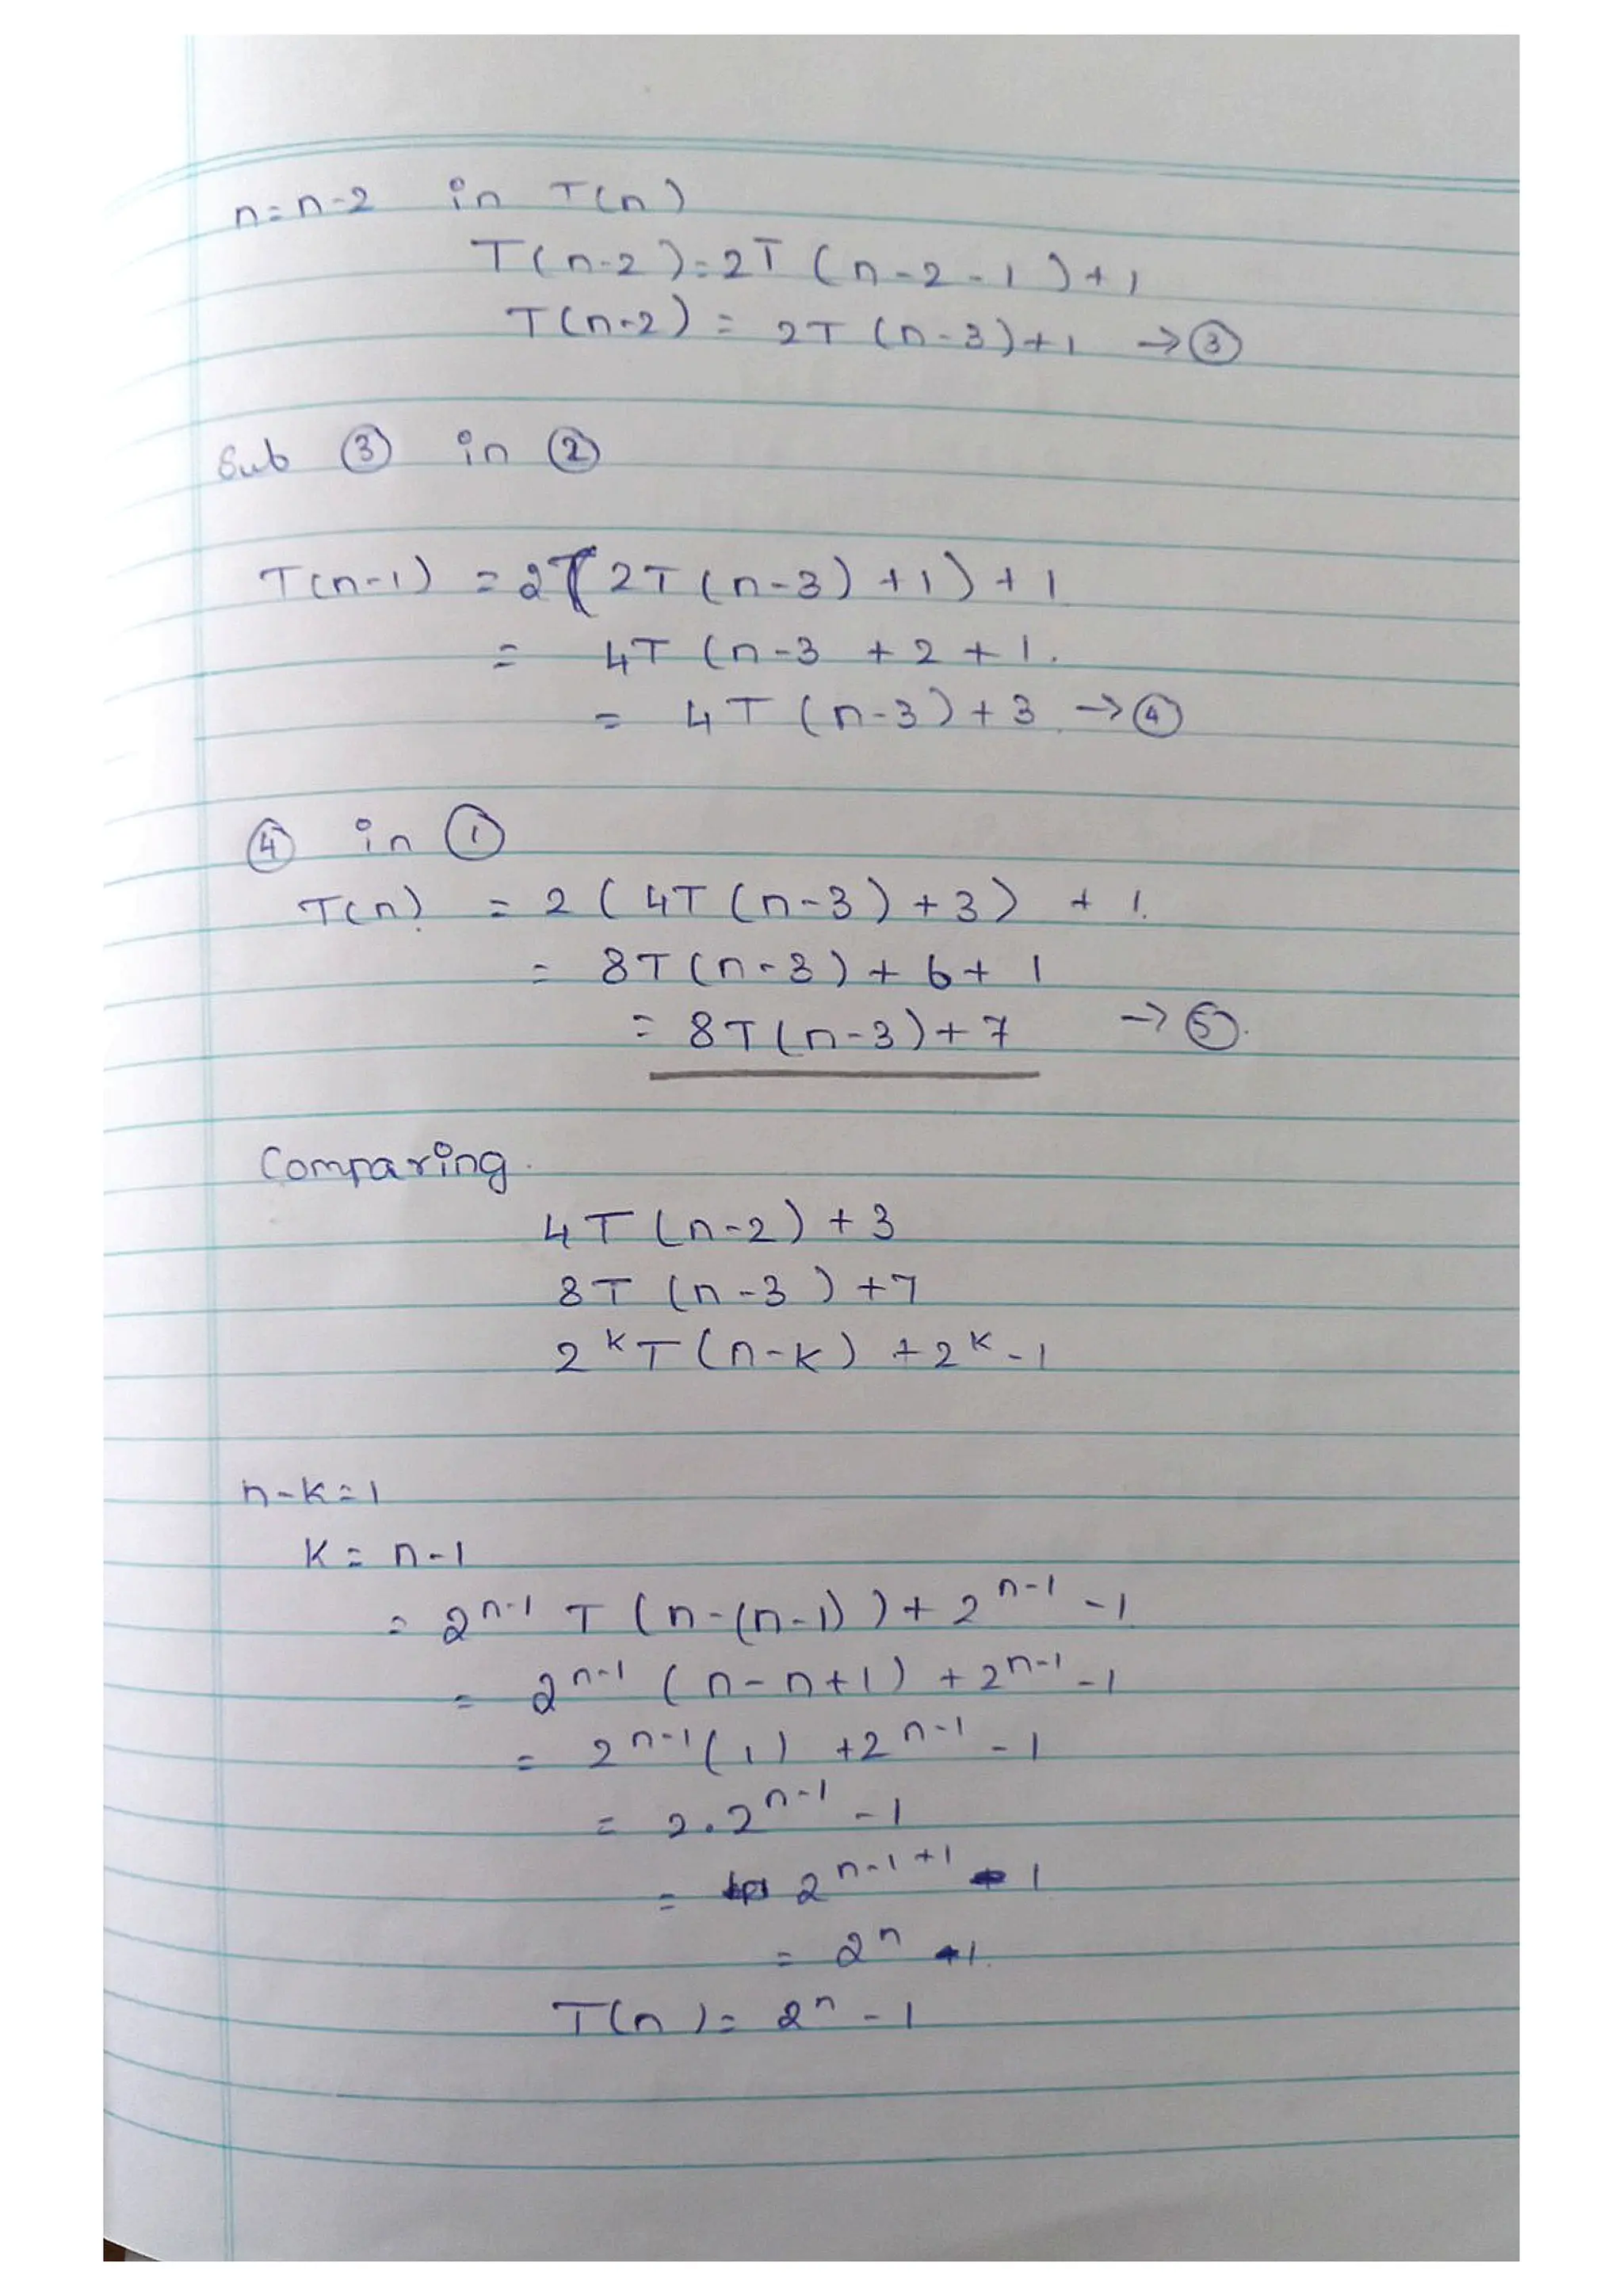 n=n-2 in T(n)
T(n-2)=2T(n-2-1)+1
T(n-2) = 2T(n-3)+1 →③
Sub ③ in ②
T(n-1) = 2T(2T(n-3)+1)+1
= 4T(n-3 +2+1.
= 4T(n-3)+3 →④
④ in ①
T(n) = 2(4T(n-3)+3) + 1.
= 8T(n-3)+6+1
= 8T(n-3)+7 →⑤.
Comparing.
4T(n-2)+3
8T(n-3)+7
2^k T(n-k) +2^k-1
n-k=1
k= n-1
= 2^{n-1} T(n-(n-1))+2^{n-1}-1
= 2^{n-1}(n-n+1)+2^{n-1}-1
= 2^{n-1}(1)+2^{n-1}-1
= 2.2^{n-1}-1
= 2^{n-1+1}-1
= 2^n-1.
T(n)= 2^n-1